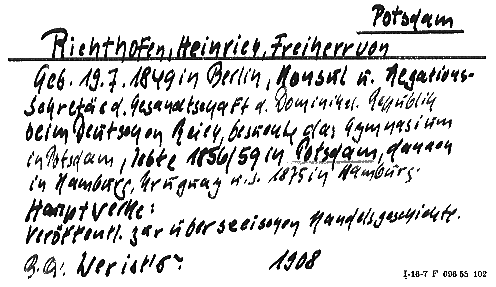 Potsdam
Richthofen, Heinrich, Freiherr von
Geb. 19.7.1849 in Berlin, Konsul u. Legations-
Sekretär d. Gesandtschaft d. Dominikl. Republik
beim Deutschen Reich, besuchte das Gymnasium
in Potsdam, lebte 1856/59 in Potsdam, danach
in Hamburg, Uruguay u. s. 1875 in Hamburg.
Hauptwerke:
Veröffentl. zur überseeischen Handelsgeschichte.
B.Q.: Wer ist's 1908
I-16-7 F 696 55 102